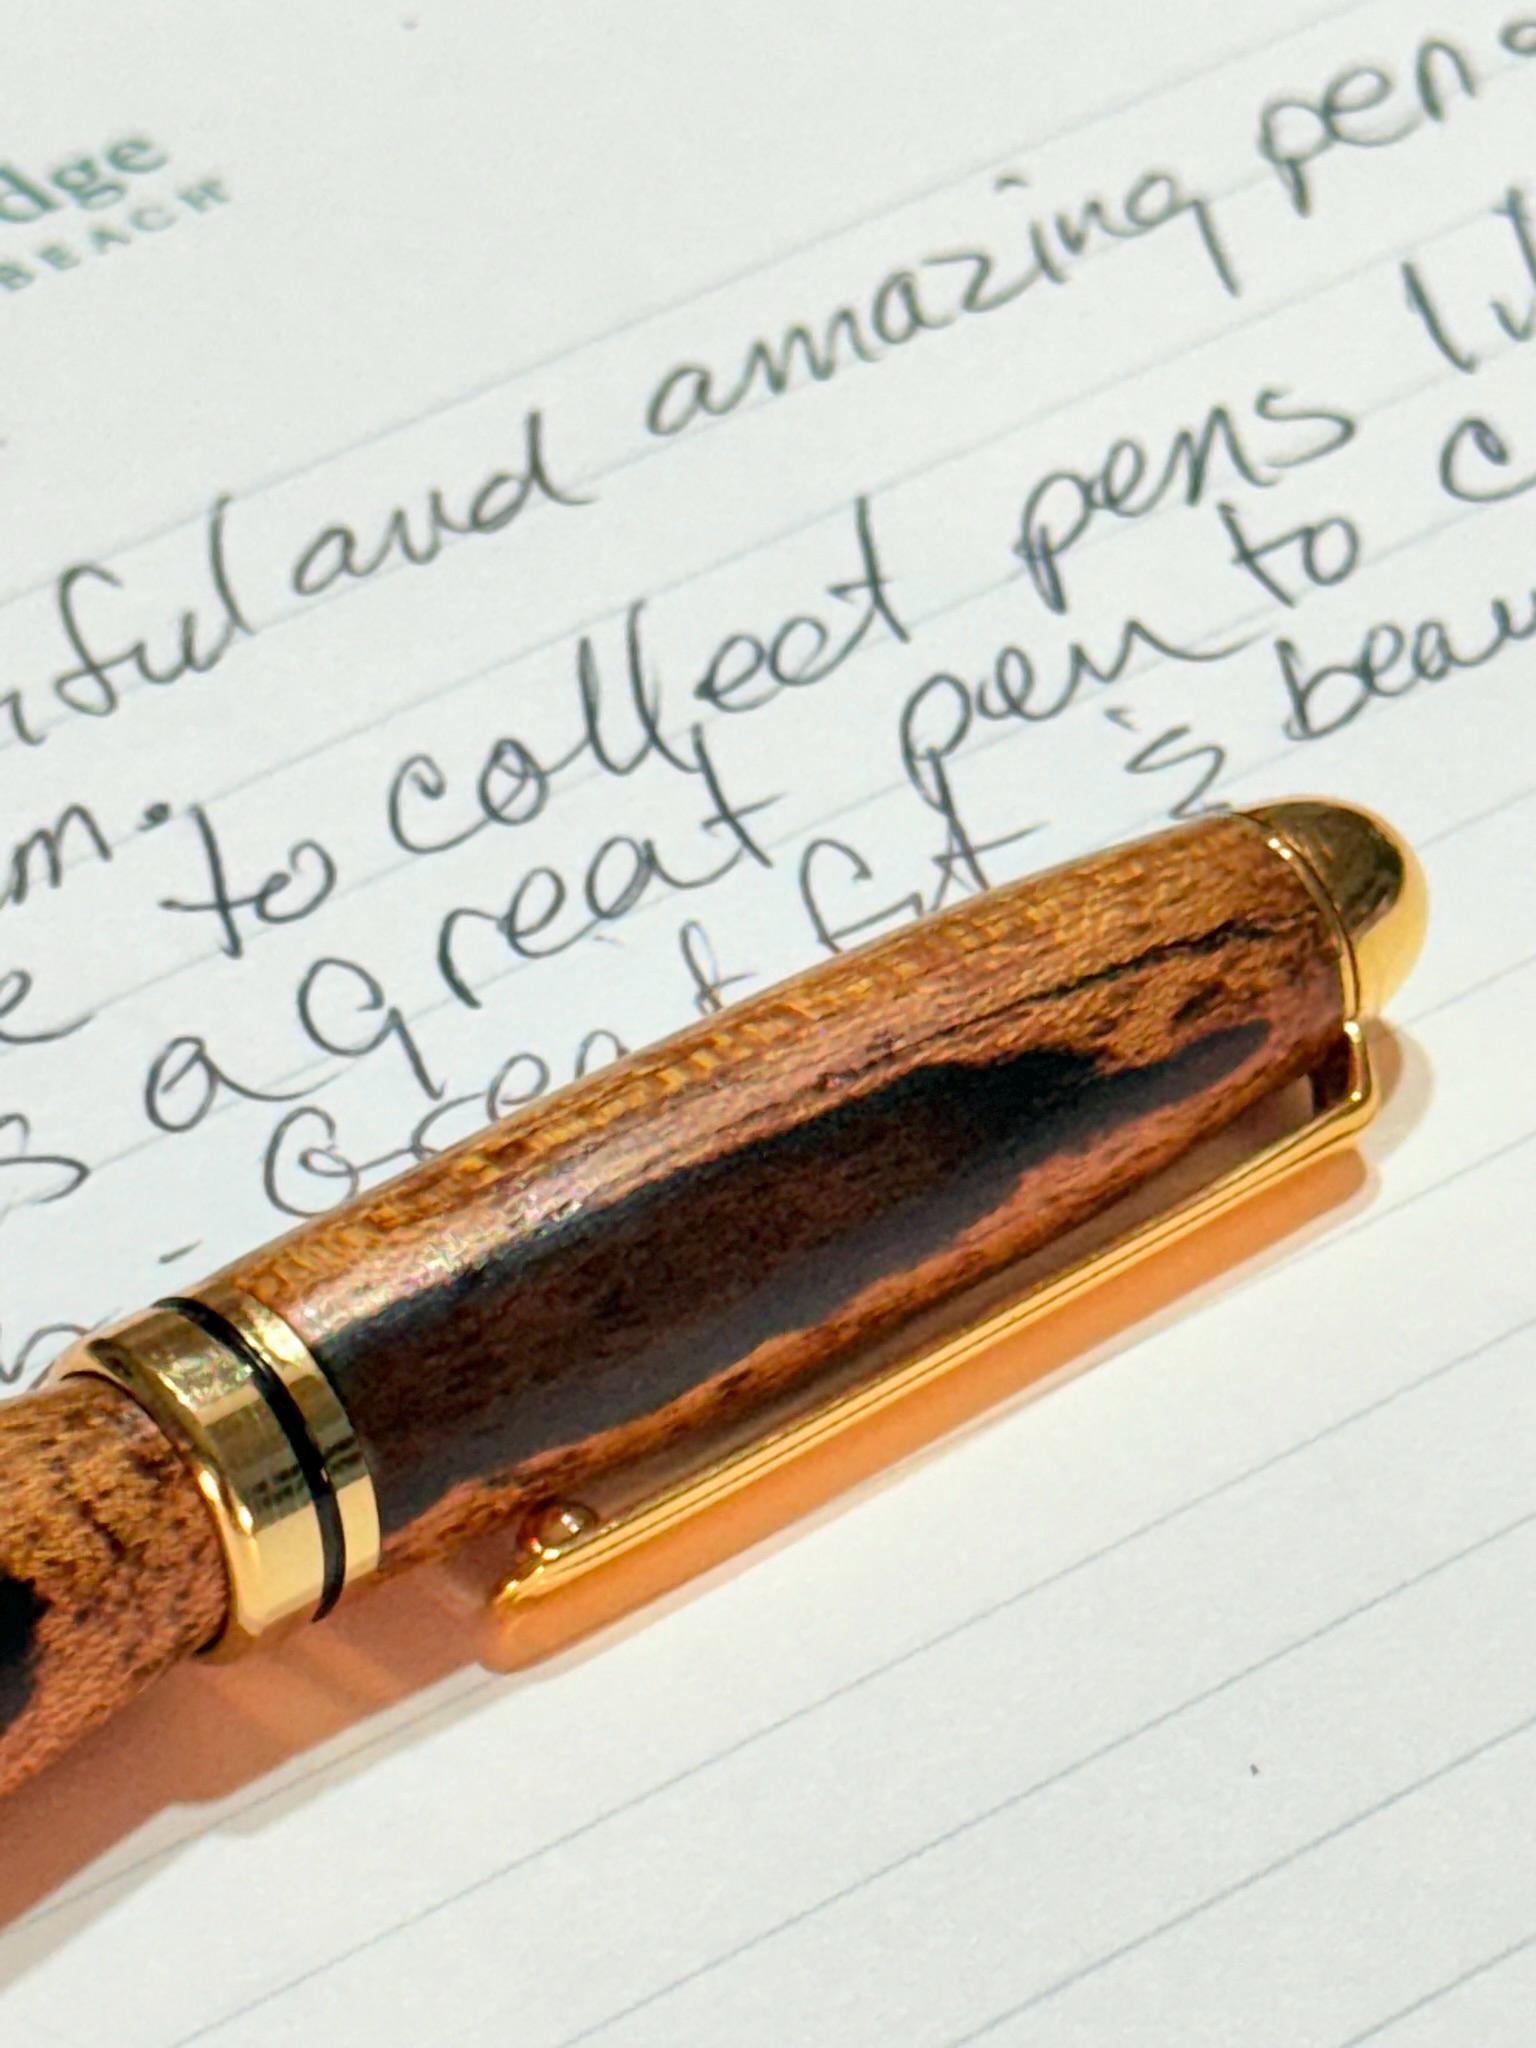 dge
BEACH
rful and amazing pens
m. I
to collect pens
a great pen to c
great fit is beau